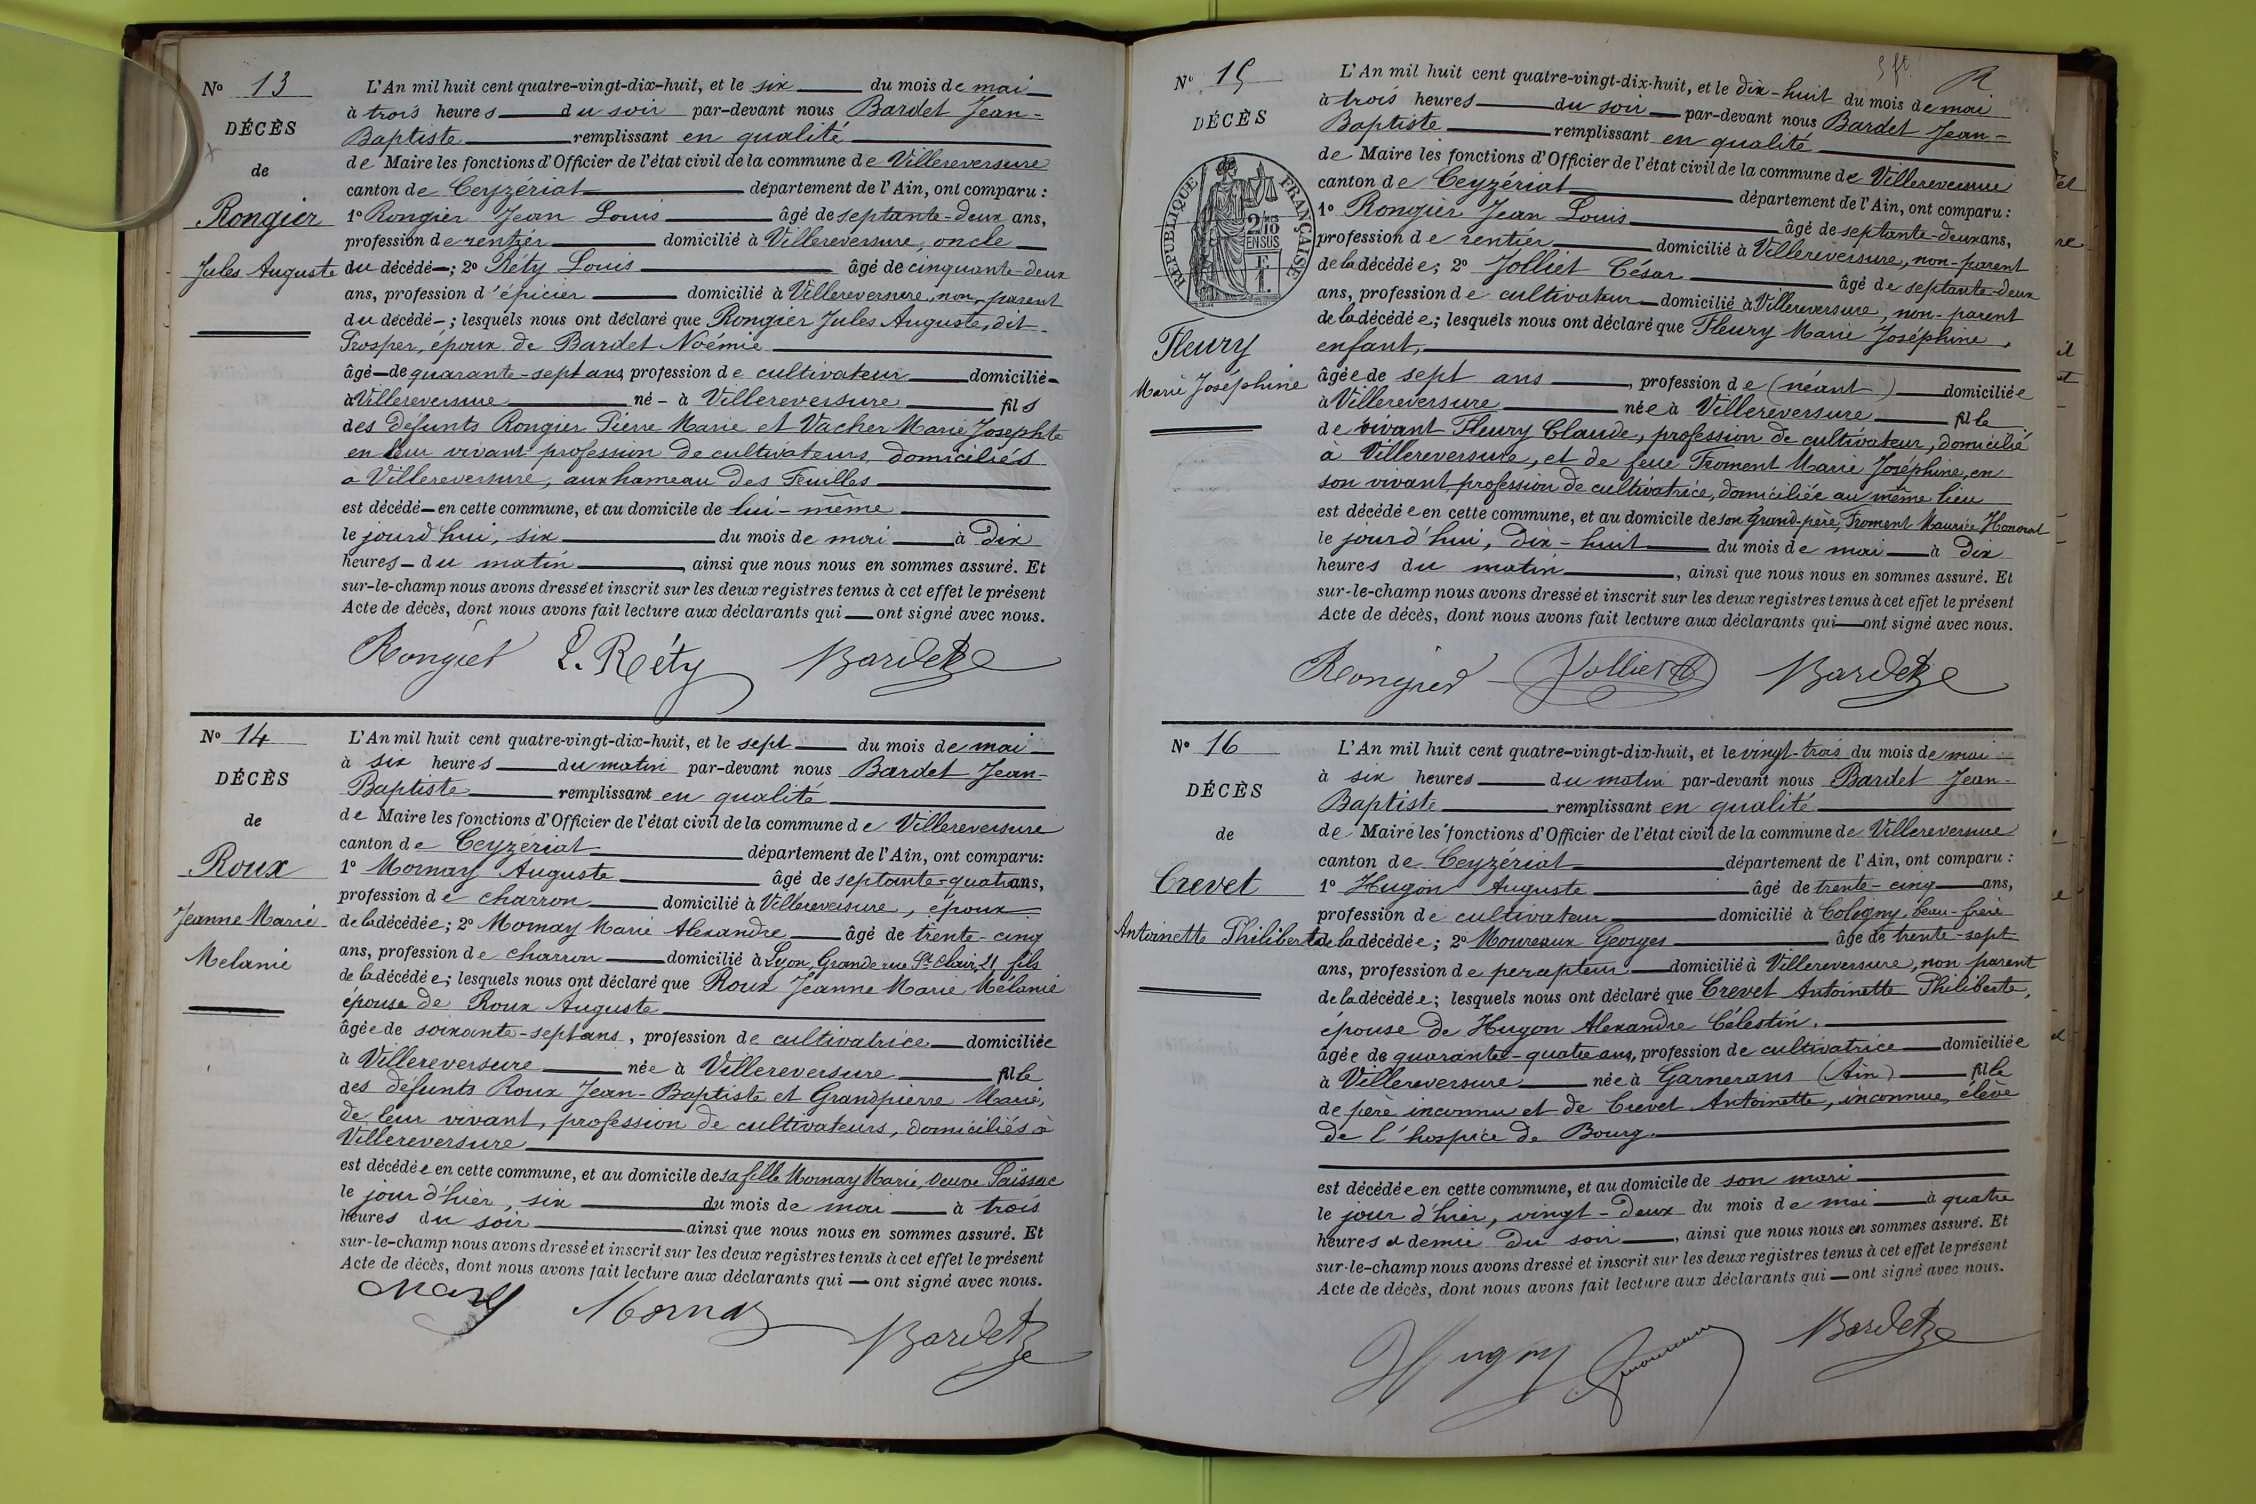 N° 13
DÉCÈS
de
Rongier
Jules Auguste
L'An mil huit cent quatre-vingt-dix-huit, et le six du mois de mai
à trois heures du soir par-devant nous Bardet Jean-
Baptiste remplissant en qualité
de Maire les fonctions d'Officier de l'état civil de la commune de Villereversure
canton de Ceyzériat département de l'Ain, ont comparu :
1° Rongier Jean Louis âgé de septante-deux ans,
profession de rentier domicilié à Villereversure, oncle
du décédé ; 2° Réty Louis âgé de cinquante-deux
ans, profession d'épicier domicilié à Villereversure, non-parent
du décédé ; lesquels nous ont déclaré que Rongier Jules Auguste, dit
Prosper, époux de Bardet Noémie
âgé de quarante-sept ans, profession de cultivateur domicilié
à Villereversure né à Villereversure fils
des défunts Rongier Pierre Marie et Vacher Marie Josephte
en leur vivant profession de cultivateurs, domiciliés
à Villereversure, aux hameau des Feuilles
est décédé en cette commune, et au domicile de lui-même
le jourd'hui, six du mois de mai à dix
heures du matin, ainsi que nous nous en sommes assuré. Et
sur-le-champ nous avons dressé et inscrit sur les deux registres tenus à cet effet le présent
Acte de décès, dont nous avons fait lecture aux déclarants qui ont signé avec nous.
Rongier L. Réty Bardet
N° 14
DÉCÈS
de
Roux
Jeanne Marie
Melanie
L'An mil huit cent quatre-vingt-dix-huit, et le sept du mois de mai
à six heures du matin par-devant nous Bardet Jean-
Baptiste remplissant en qualité
de Maire les fonctions d'Officier de l'état civil de la commune de Villereversure
canton de Ceyzériat département de l'Ain, ont comparu :
1° Mornay Auguste âgé de septante-quatre ans,
profession de charron domicilié à Villereversure, époux
de la décédée ; 2° Mornay Marie Alexandre âgé de trente-cinq
ans, profession de charron domicilié à Lyon, Grande rue St Clair, 21 fils
de la décédée ; lesquels nous ont déclaré que Roux Jeanne Marie Mélanie
épouse de Roux Auguste
âgée de soixante-sept ans, profession de cultivatrice domiciliée
à Villereversure née à Villereversure fille
des défunts Roux Jean-Baptiste et Grandpierre Marie,
de leur vivant, profession de cultivateurs, domiciliés à
Villereversure
est décédée en cette commune, et au domicile de sa fille Mornay Marie, veuve Saïssac
le jour d'hier, six du mois de mai à trois
heures du soir ainsi que nous nous en sommes assuré. Et
sur-le-champ nous avons dressé et inscrit sur les deux registres tenus à cet effet le présent
Acte de décès, dont nous avons fait lecture aux déclarants qui ont signé avec nous.
Mornay Bardet
N° 15
DÉCÈS
RÉPUBLIQUE FRANÇAISE
2/10 EN SUS
Fleury
Marie Joséphine
L'An mil huit cent quatre-vingt-dix-huit, et le dix-huit du mois de mai
à trois heures du soir par-devant nous Bardet Jean-
Baptiste remplissant en qualité
de Maire les fonctions d'Officier de l'état civil de la commune de Villereversure
canton de Ceyzériat département de l'Ain, ont comparu :
1° Rongier Jean Louis âgé de septante-deux ans,
profession de rentier domicilié à Villereversure, non-parent
de la décédée ; 2° Jolliet César âgé de septante-deux
ans, profession de cultivateur domicilié à Villereversure, non-parent
de la décédée ; lesquels nous ont déclaré que Fleury Marie Joséphine,
enfant,
âgée de sept ans, profession de (néant) domiciliée
à Villereversure née à Villereversure fille
de vivant Fleury Claude, profession de cultivateur, domicilié
à Villereversure, et de feue Froment Marie Joséphine, en
son vivant profession de cultivatrice, domiciliée au même lieu
est décédée en cette commune, et au domicile de son Grand-père, Froment Maurice Honorat
le jourd'hui, dix-huit du mois de mai à dix
heures du matin, ainsi que nous nous en sommes assuré. Et
sur-le-champ nous avons dressé et inscrit sur les deux registres tenus à cet effet le présent
Acte de décès, dont nous avons fait lecture aux déclarants qui ont signé avec nous.
Rongier Jolliet Bardet
N° 16
DÉCÈS
de
Crevet
Antoinette Philiberte
L'An mil huit cent quatre-vingt-dix-huit, et le vingt-trois du mois de mai
à six heures du matin par-devant nous Bardet Jean-
Baptiste remplissant en qualité
de Maire les fonctions d'Officier de l'état civil de la commune de Villereversure
canton de Ceyzériat département de l'Ain, ont comparu :
1° Hugon Auguste âgé de trente-cinq ans,
profession de cultivateur domicilié à Coligny, beau-frère
de la décédée ; 2° Moureaux Georges âgé de trente-sept
ans, profession de percepteur domicilié à Villereversure, non parent
de la décédée ; lesquels nous ont déclaré que Crevet Antoinette Philiberte,
épouse de Hugon Alexandre Célestin,
âgée de quarante-quatre ans, profession de cultivatrice domiciliée
à Villereversure née à Garnerans (Ain) fille
de père inconnu et de Crevet Antoinette, inconnue, élève
de l'hospice de Bourg.
est décédée en cette commune, et au domicile de son mari
le jour d'hier, vingt-deux du mois de mai à quatre
heures et demie du soir, ainsi que nous nous en sommes assuré. Et
sur-le-champ nous avons dressé et inscrit sur les deux registres tenus à cet effet le présent
Acte de décès, dont nous avons fait lecture aux déclarants qui ont signé avec nous.
Hugon Bardet